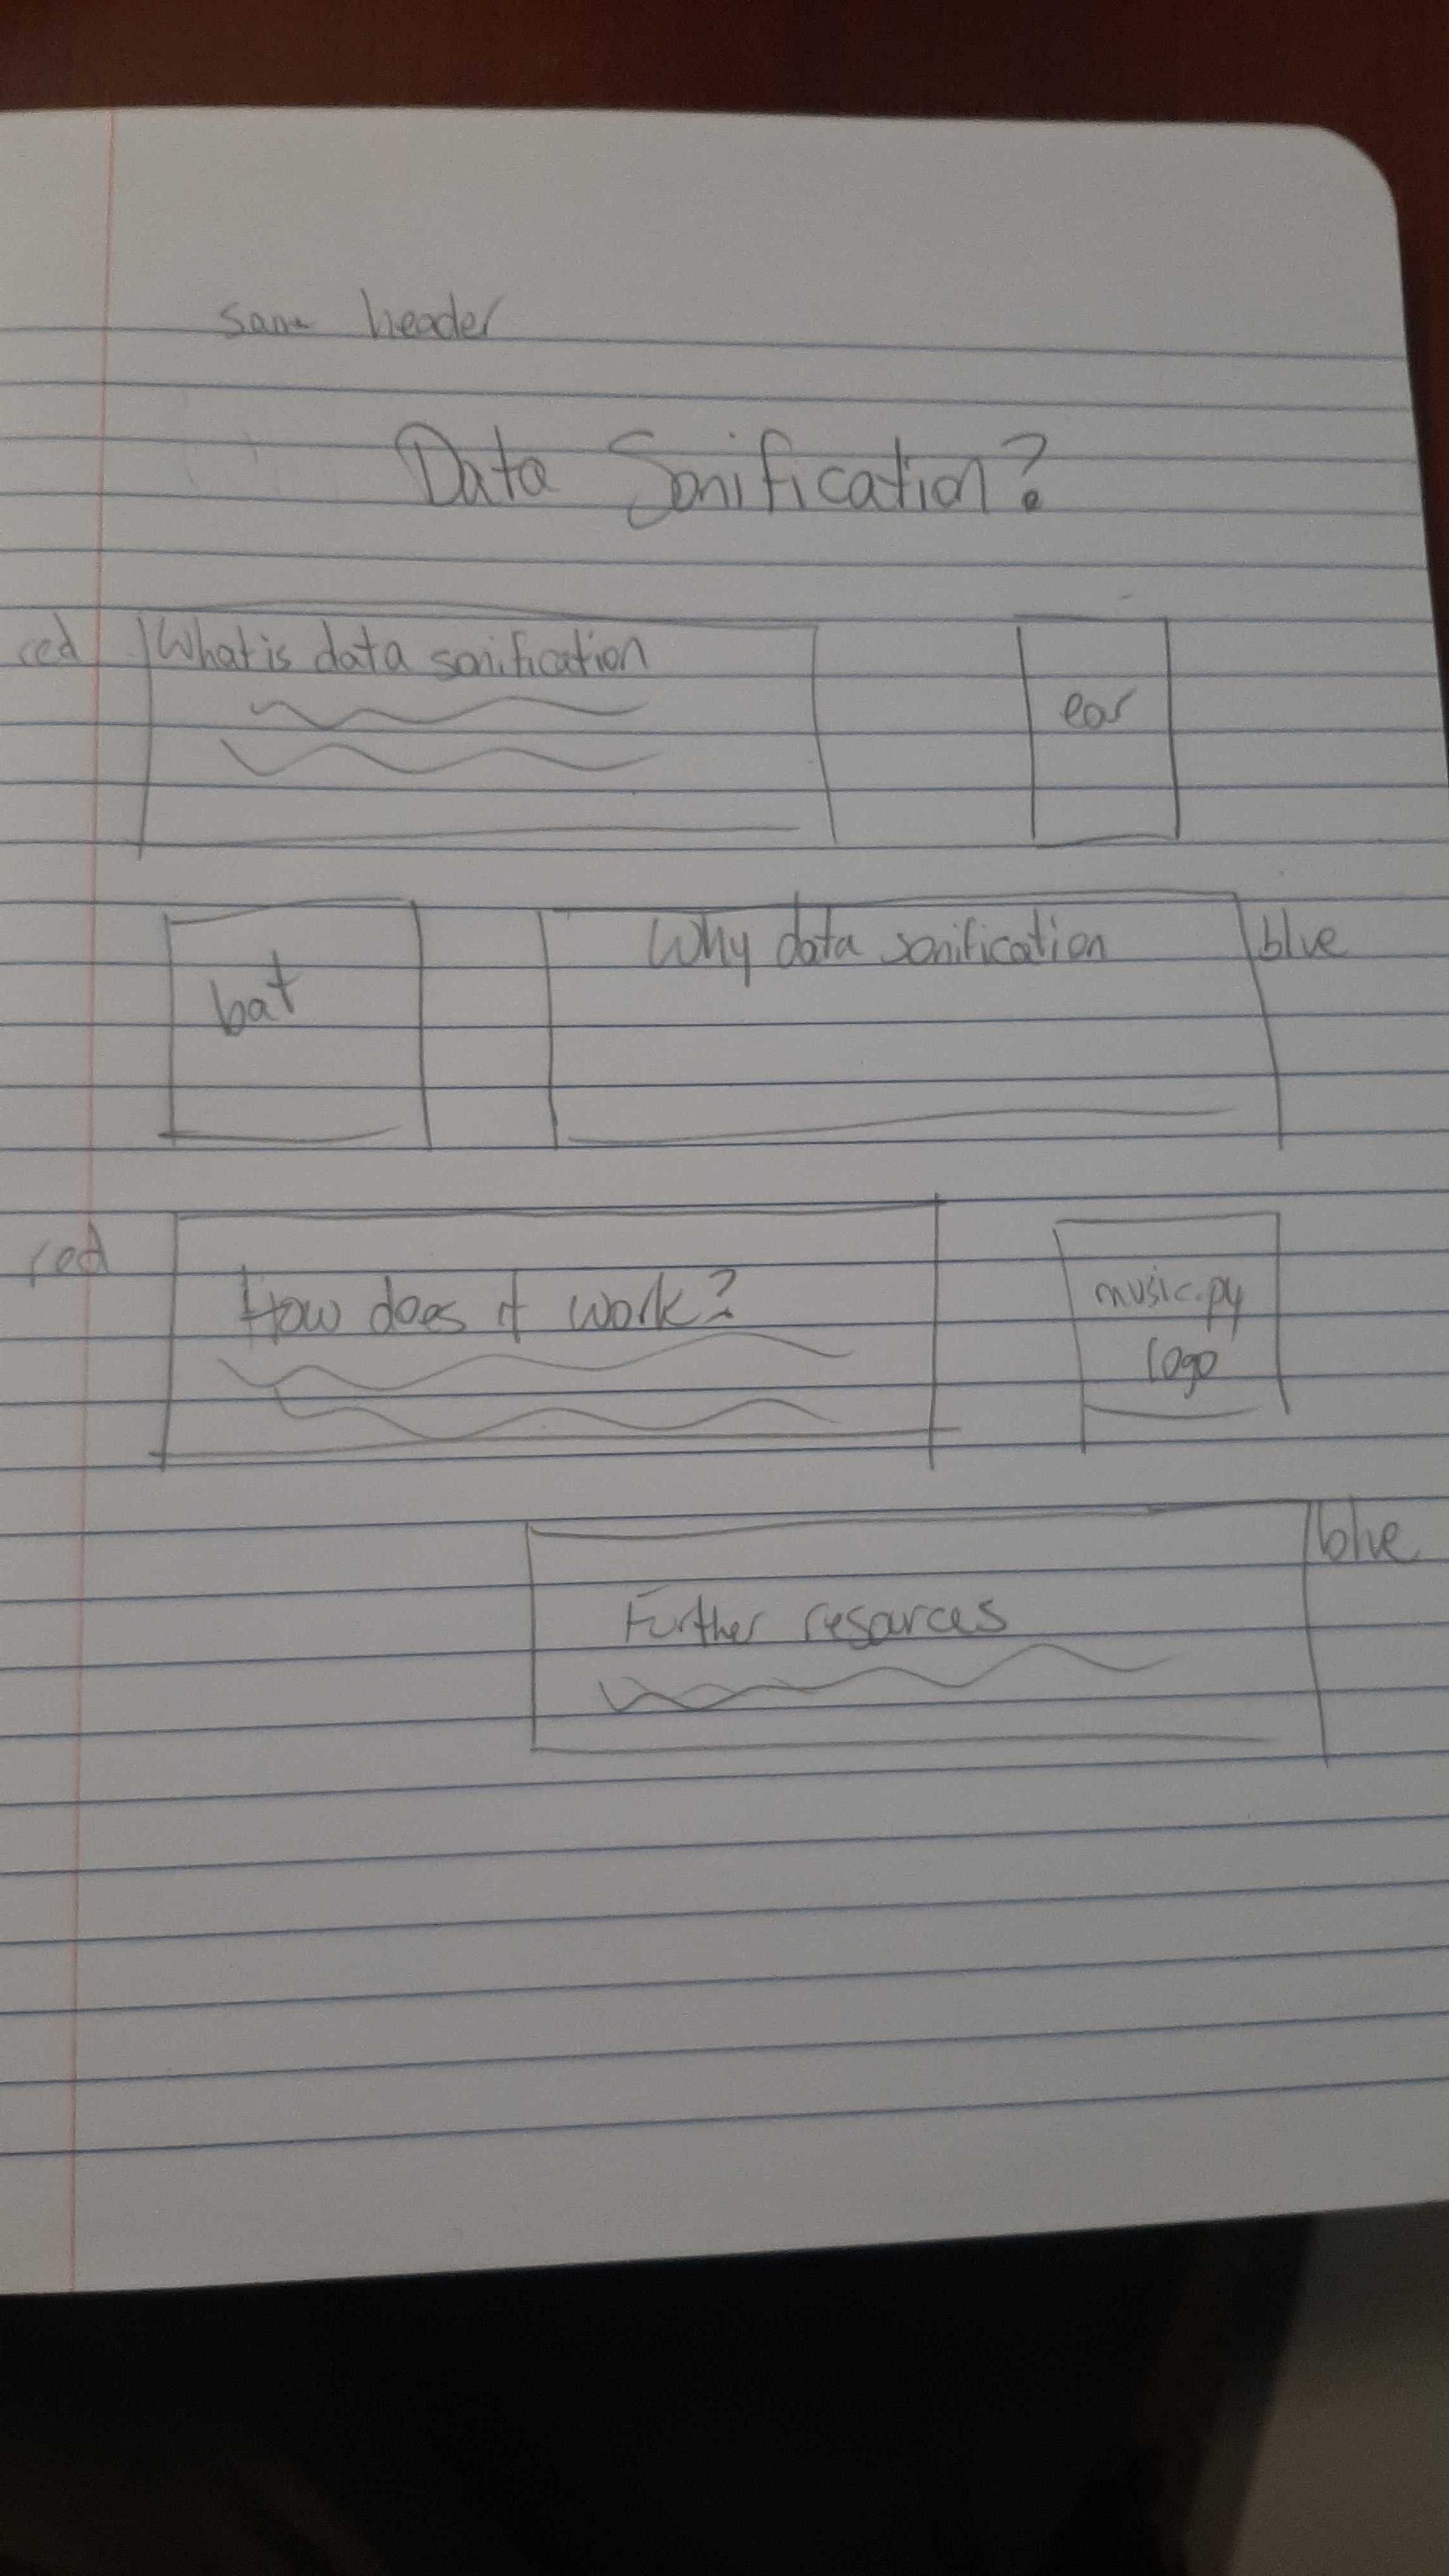 same header
Data Sonification?
red What is data sonification
ear
bat
Why data sonification blue
red
How does it work?
music.py
logo
blue
Further resources